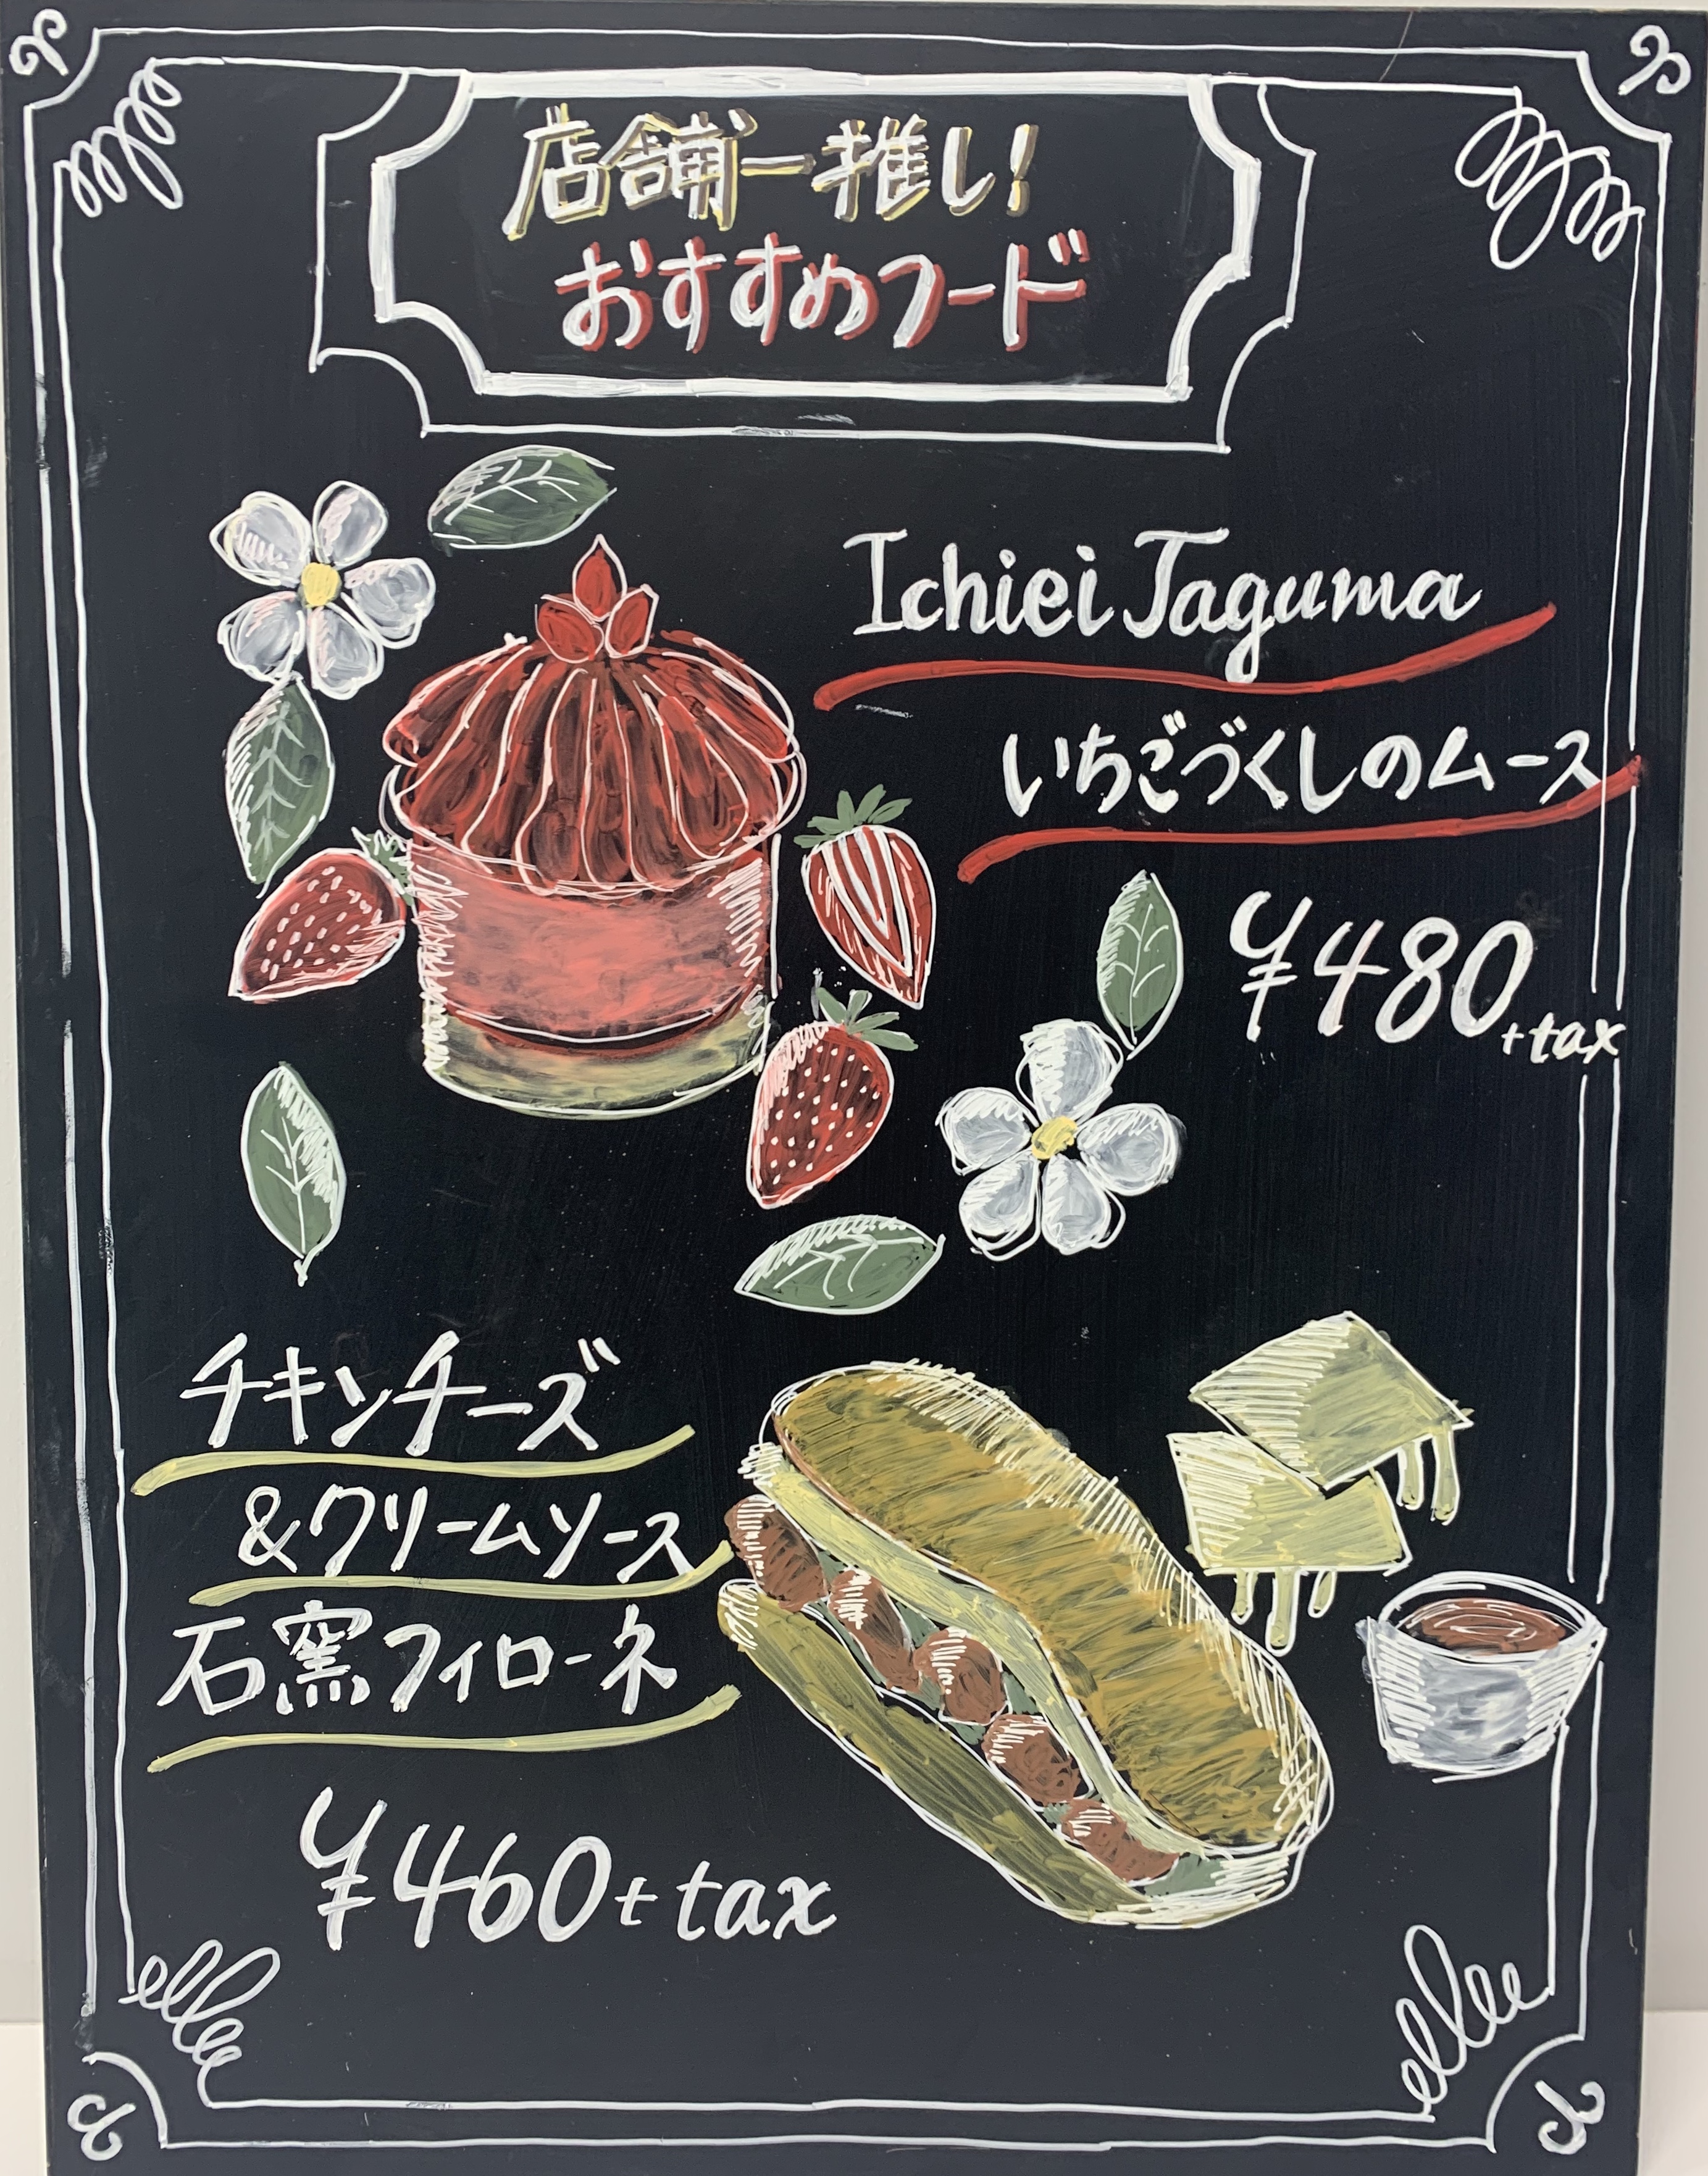 店舗一推し!
おすすめフード
Ichiei Taguma
いちごづくしのムース
¥480+tax
チキンチーズ
&クリームソース
石窯フィローネ
¥460+tax